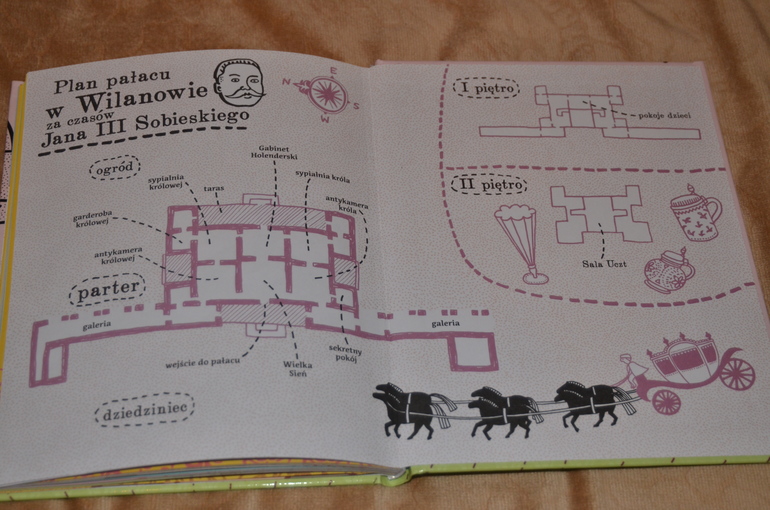 Plan pałacu
w Wilanowie
za czasów
Jana III Sobieskiego
N
E
S
W
ogród
Gabinet
Holenderski
sypialnia
królowej
taras
sypialnia króla
antykamera
króla
garderoba
królowej
antykamera
królowej
parter
galeria
galeria
wejście do pałacu
Wielka
Sień
sekretny
pokój
dziedziniec
I piętro
pokoje dzieci
II piętro
Sala Uczt